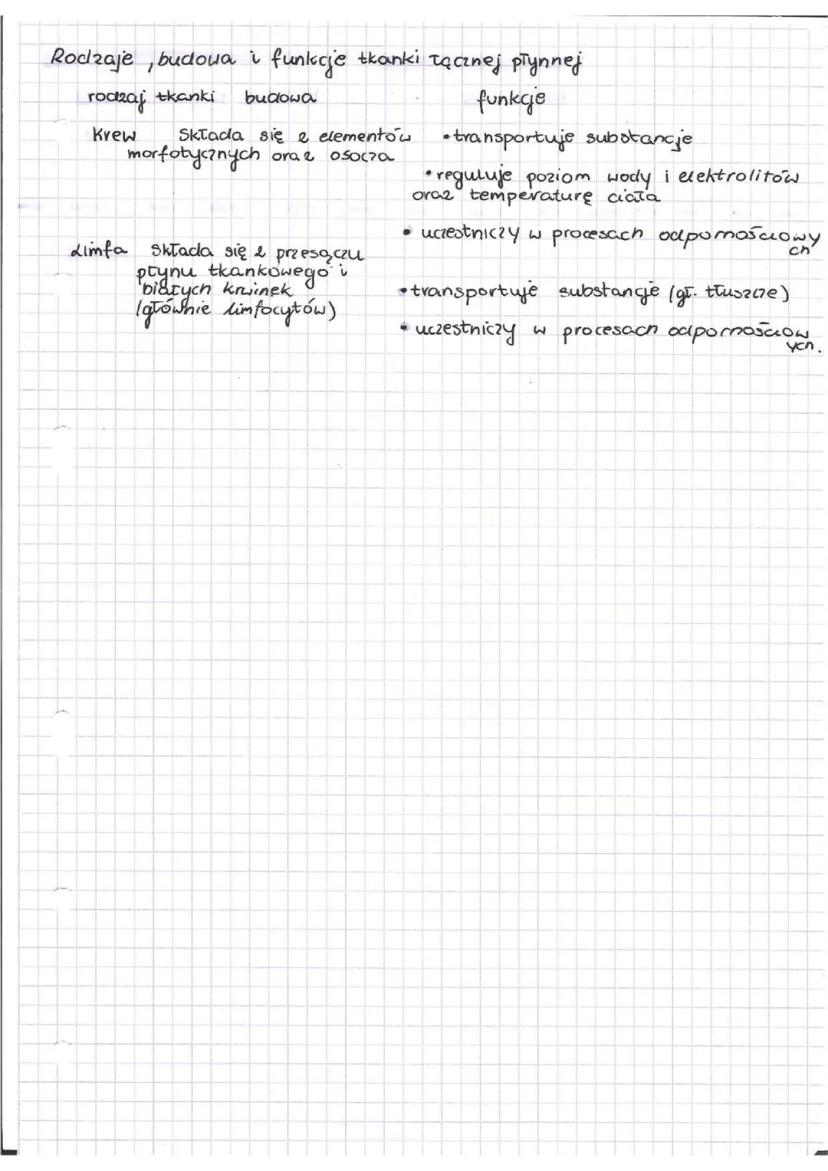 Rodzaje, budowa i funkcje tkanki łącznej płynnej
rodzaj tkanki budowa funkcje
Krew składa się z elementów
morfotycznych oraz osocza
• transportuje substancje
• reguluje poziom wody i elektrolitów
oraz temperaturę ciała
• uczestniczy w procesach odpornościowy
ch
Limfa składa się z przesączu
płynu tkankowego i
białych krwinek
(głównie limfocytów)
• transportuje substancje (gł. tłuszcze)
• uczestniczy w procesach odpornościow
ych.